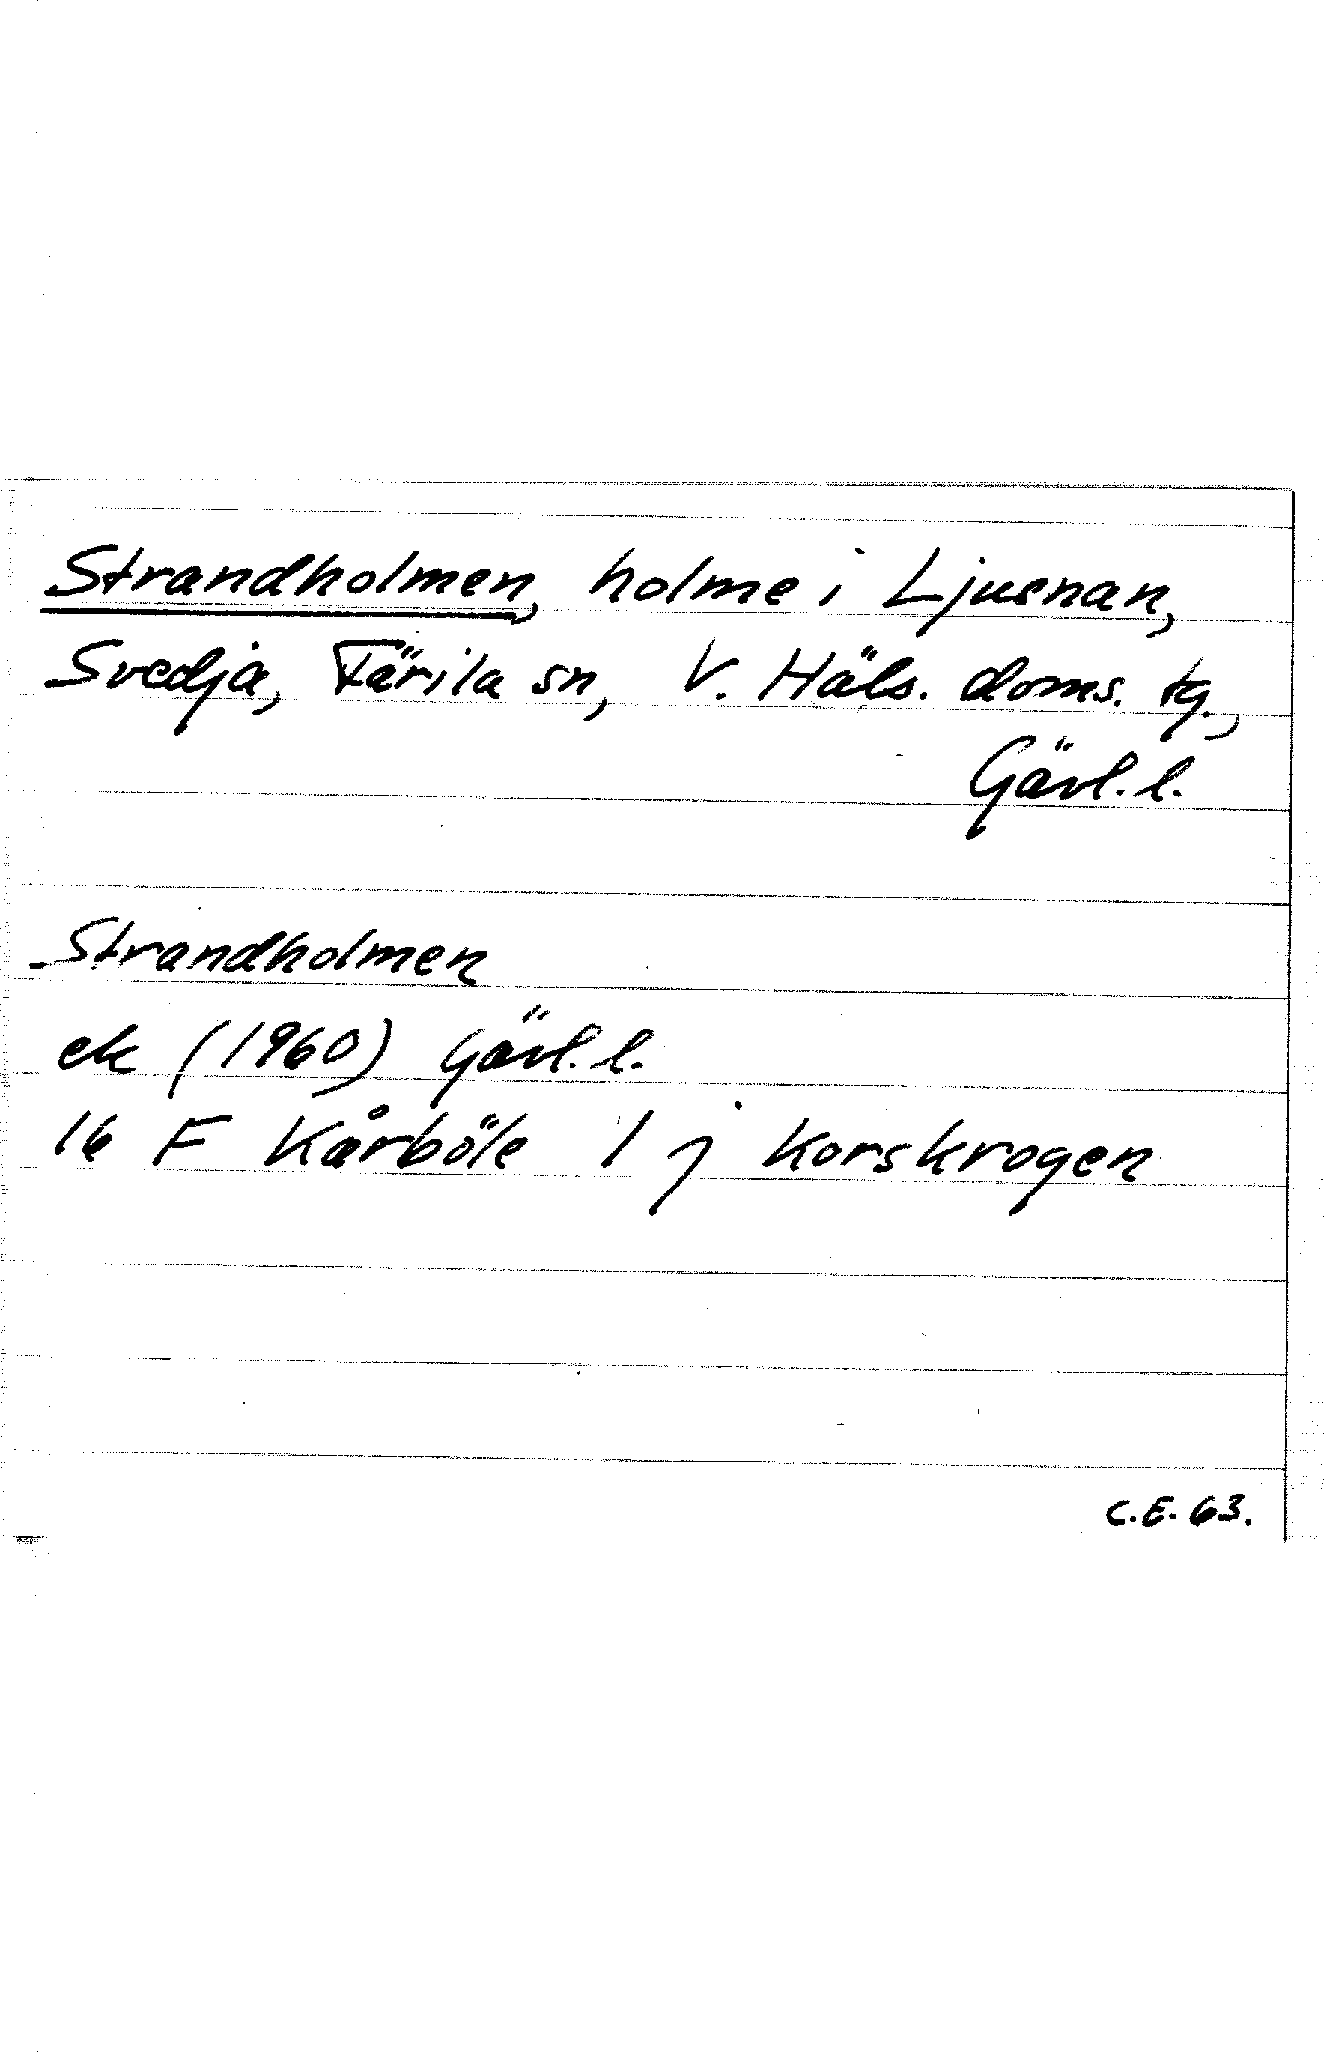 Strandholmen, holme i Ljusnan,
Svedja, Färila sn, V. Häls. doms. tg.,
Gävl. l.
Strandholmen
ek (1960) Gävl. l.
16 F Kårböle 1 j Korskrogen
C.E. 63.